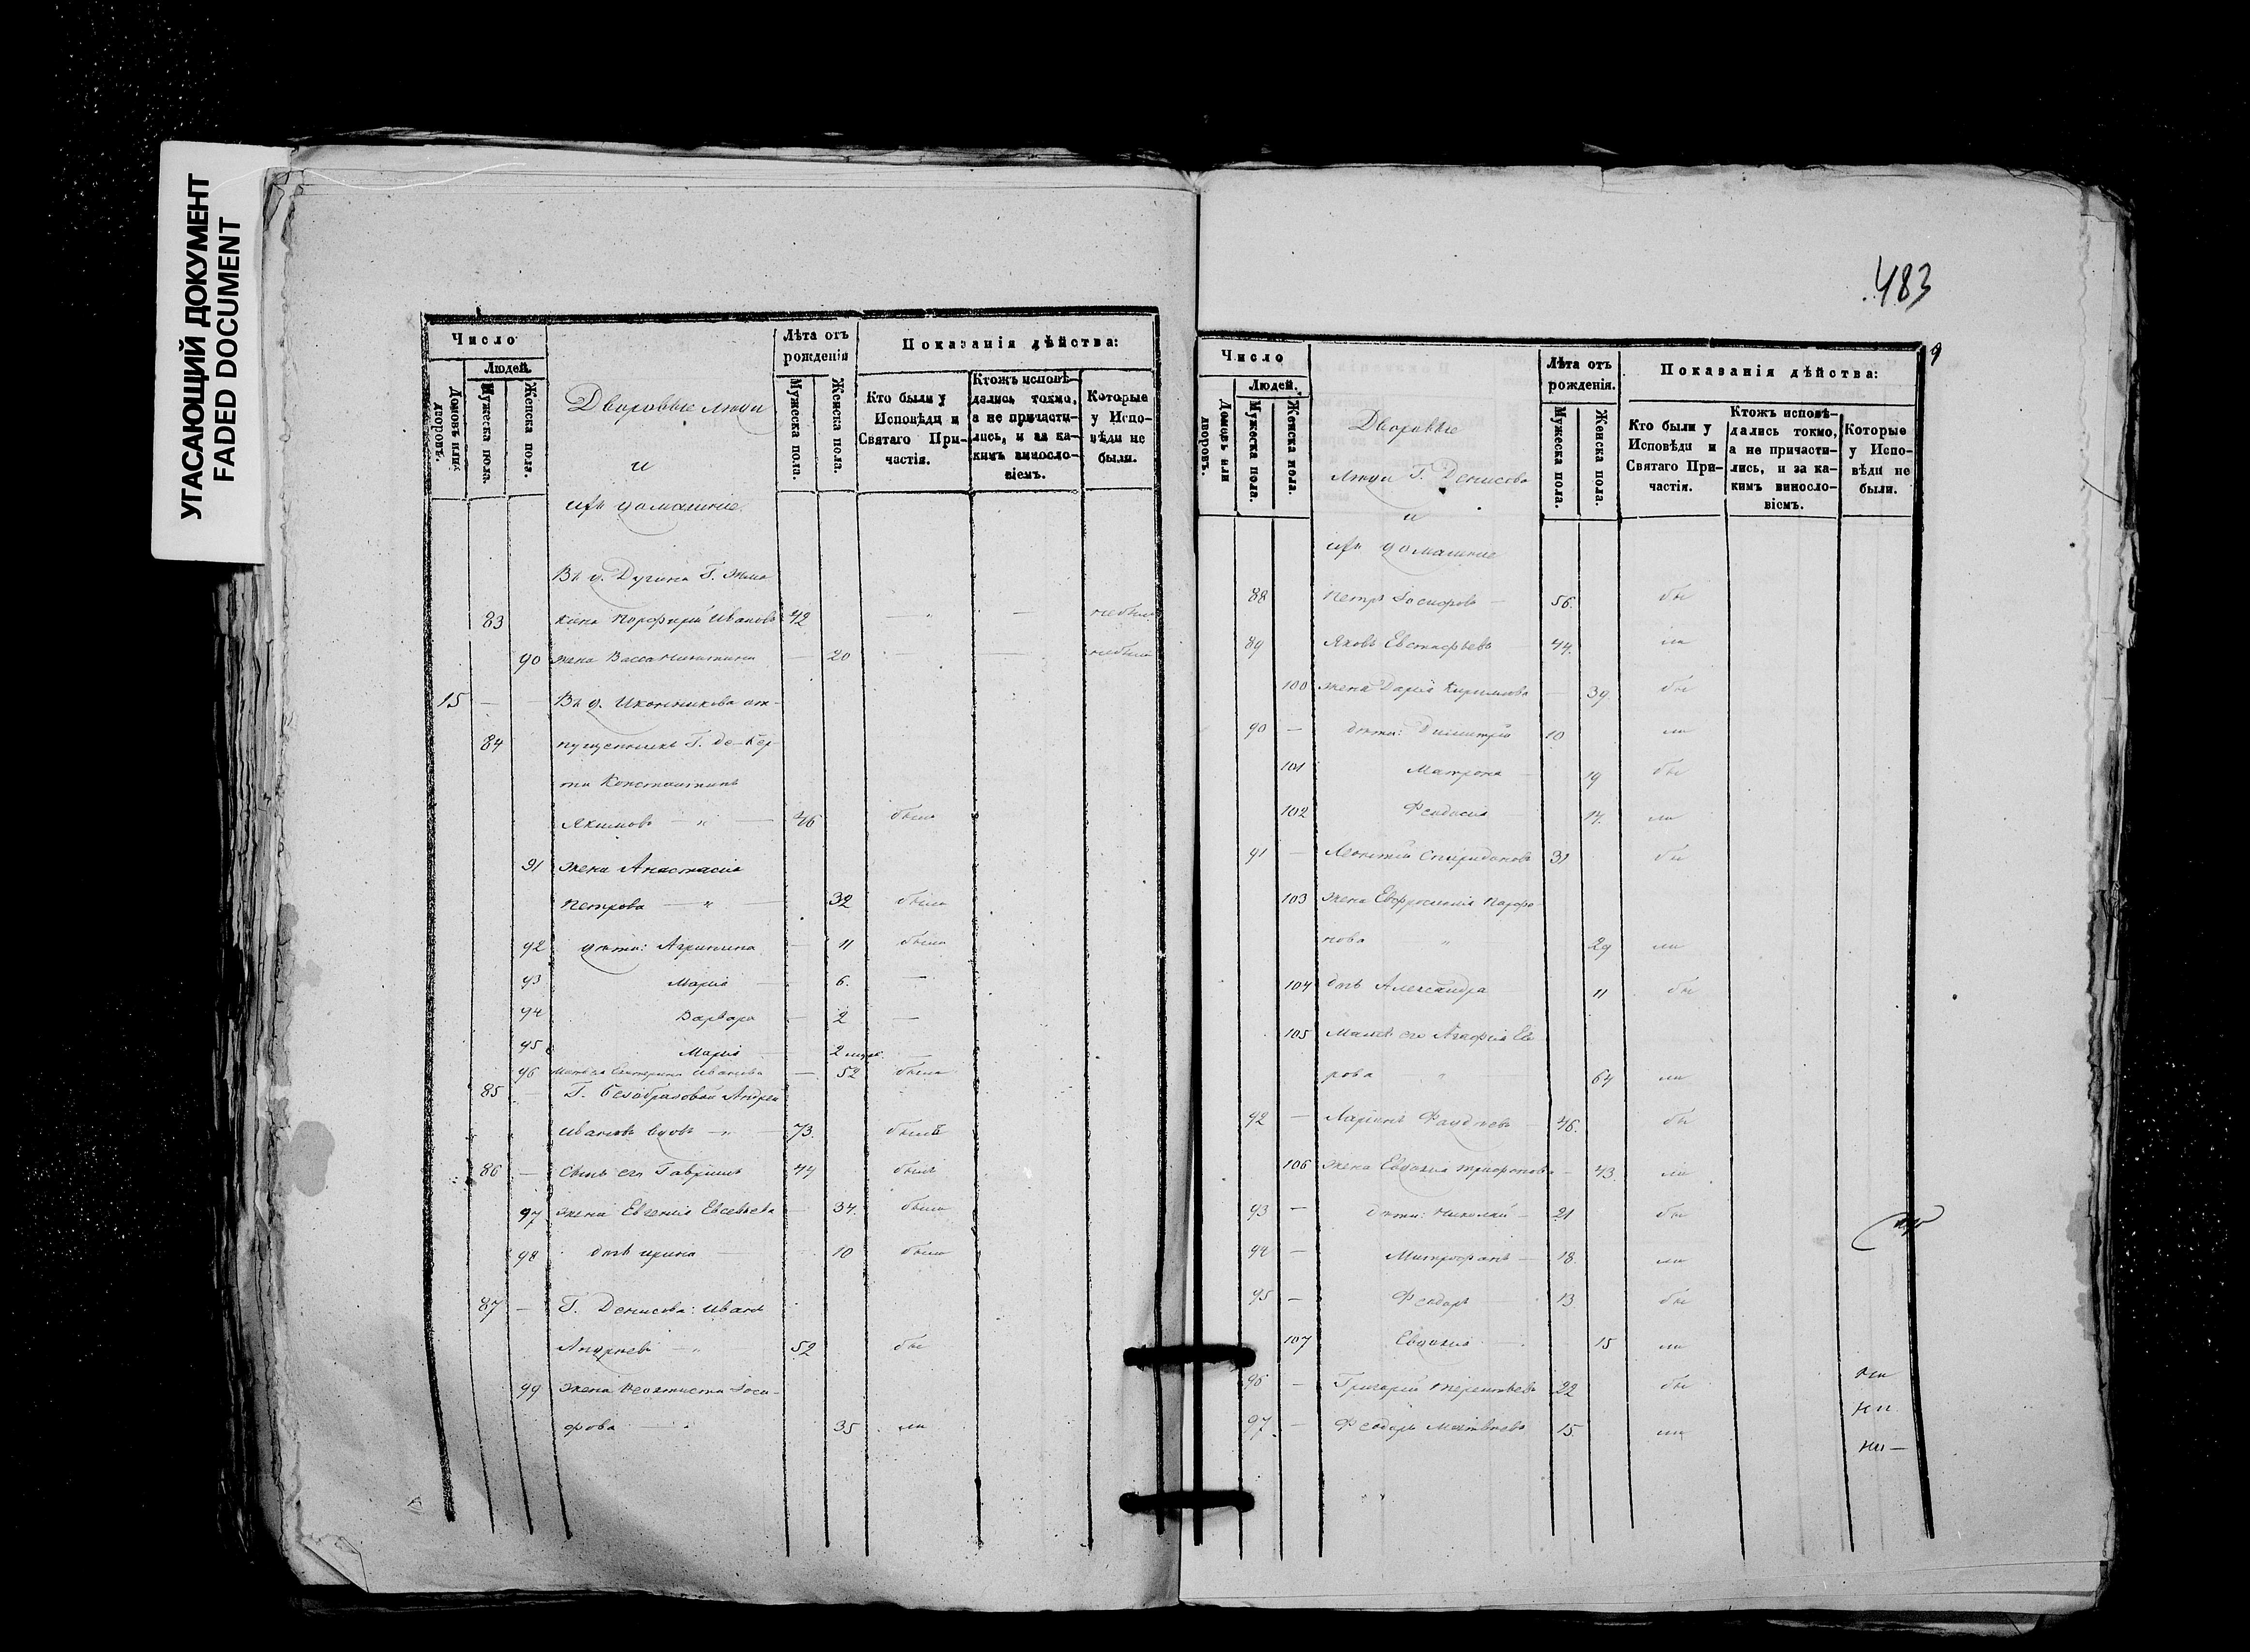 УГАСАЮЩИЙ ДОКУМЕНТ
FADED DOCUMENT
Число
Людей.
Домовъ или дворовъ.
Мужеска пола.
Женска пола.
Дворовые люди
и
ихъ домашніе.
Лѣта отъ рожденія
Мужеска пола.
Женска пола.
Показанія дѣйства:
Кто были у Исповѣди и Святаго Причастія.
Ктожъ исповѣдались токмо, а не причастились, и за какимъ винословіемъ.
Которые у Исповѣди не были.
Въ д. Дугина Г.
83 Порфирій Ивановъ 42 небылъ
90 жена Васса Никитина 20 небыла
15 Въ д. Иконникова от-
84 пущенникъ Г. Де-
Константинъ
Якимовъ 46 былъ
91 жена Анастасія
Петрова 32 была
92 дѣти: Агрипина 11 была
93 Марія 6.
94 Варвара 2
95 Марія 2
96 Мать его Екатерина Иванова 52 была
85 Г. Безобразовой Андрей
Ивановъ вдовъ 73. былъ
86 Сынъ его Гавріилъ 44 былъ
97 жена Евгенія Евсевьева 34. была
98 дочь Ирина 10 была
87 Г. Денисова: Иванъ
Андреевъ 52 бы
99 жена Феоктиста Іоси-
фова 35 ли
483
9
Число
Людей.
Домовъ или дворовъ.
Мужеска пола.
Женска пола.
Дворовые
люди Г. Денисова
и
ихъ домашніе
Лѣта отъ рожденія.
Мужеска пола.
Женска пола.
Показанія дѣйства:
Кто были у Исповѣди и Святаго Причастія.
Ктожъ исповѣдались токмо, а не причастились, и за какимъ винословіемъ.
Которые у Исповѣди не были.
88 Петръ Іосифовъ 56. бы
89 Яковъ Евстафьевъ 44. ли
100 жена Дарія Кириллова 39. бы
90 дѣти: Димитрій 10 ли
101 Матрона 19 бы
102 Феодосія 14. ли
91 Леонтій Спиридоновъ 31 бы
103 жена Евфросинія Парфе-
нова 29 ли
104 дочь Александра 11 бы
105 Мать его Агафія
рова 64 ли
92 Ларіонъ Фаддеевъ 46. бы
106 жена Евдокія Трифонова 43. ли
93 дѣти: Николай 21 бы
94 Митрофанъ 18. ли
95 Феодоръ 13. бы
107 Евдокія 15 ли
96 Григорій Терентьевъ 22 бы
97 Феодоръ Матвѣевъ 15. ли